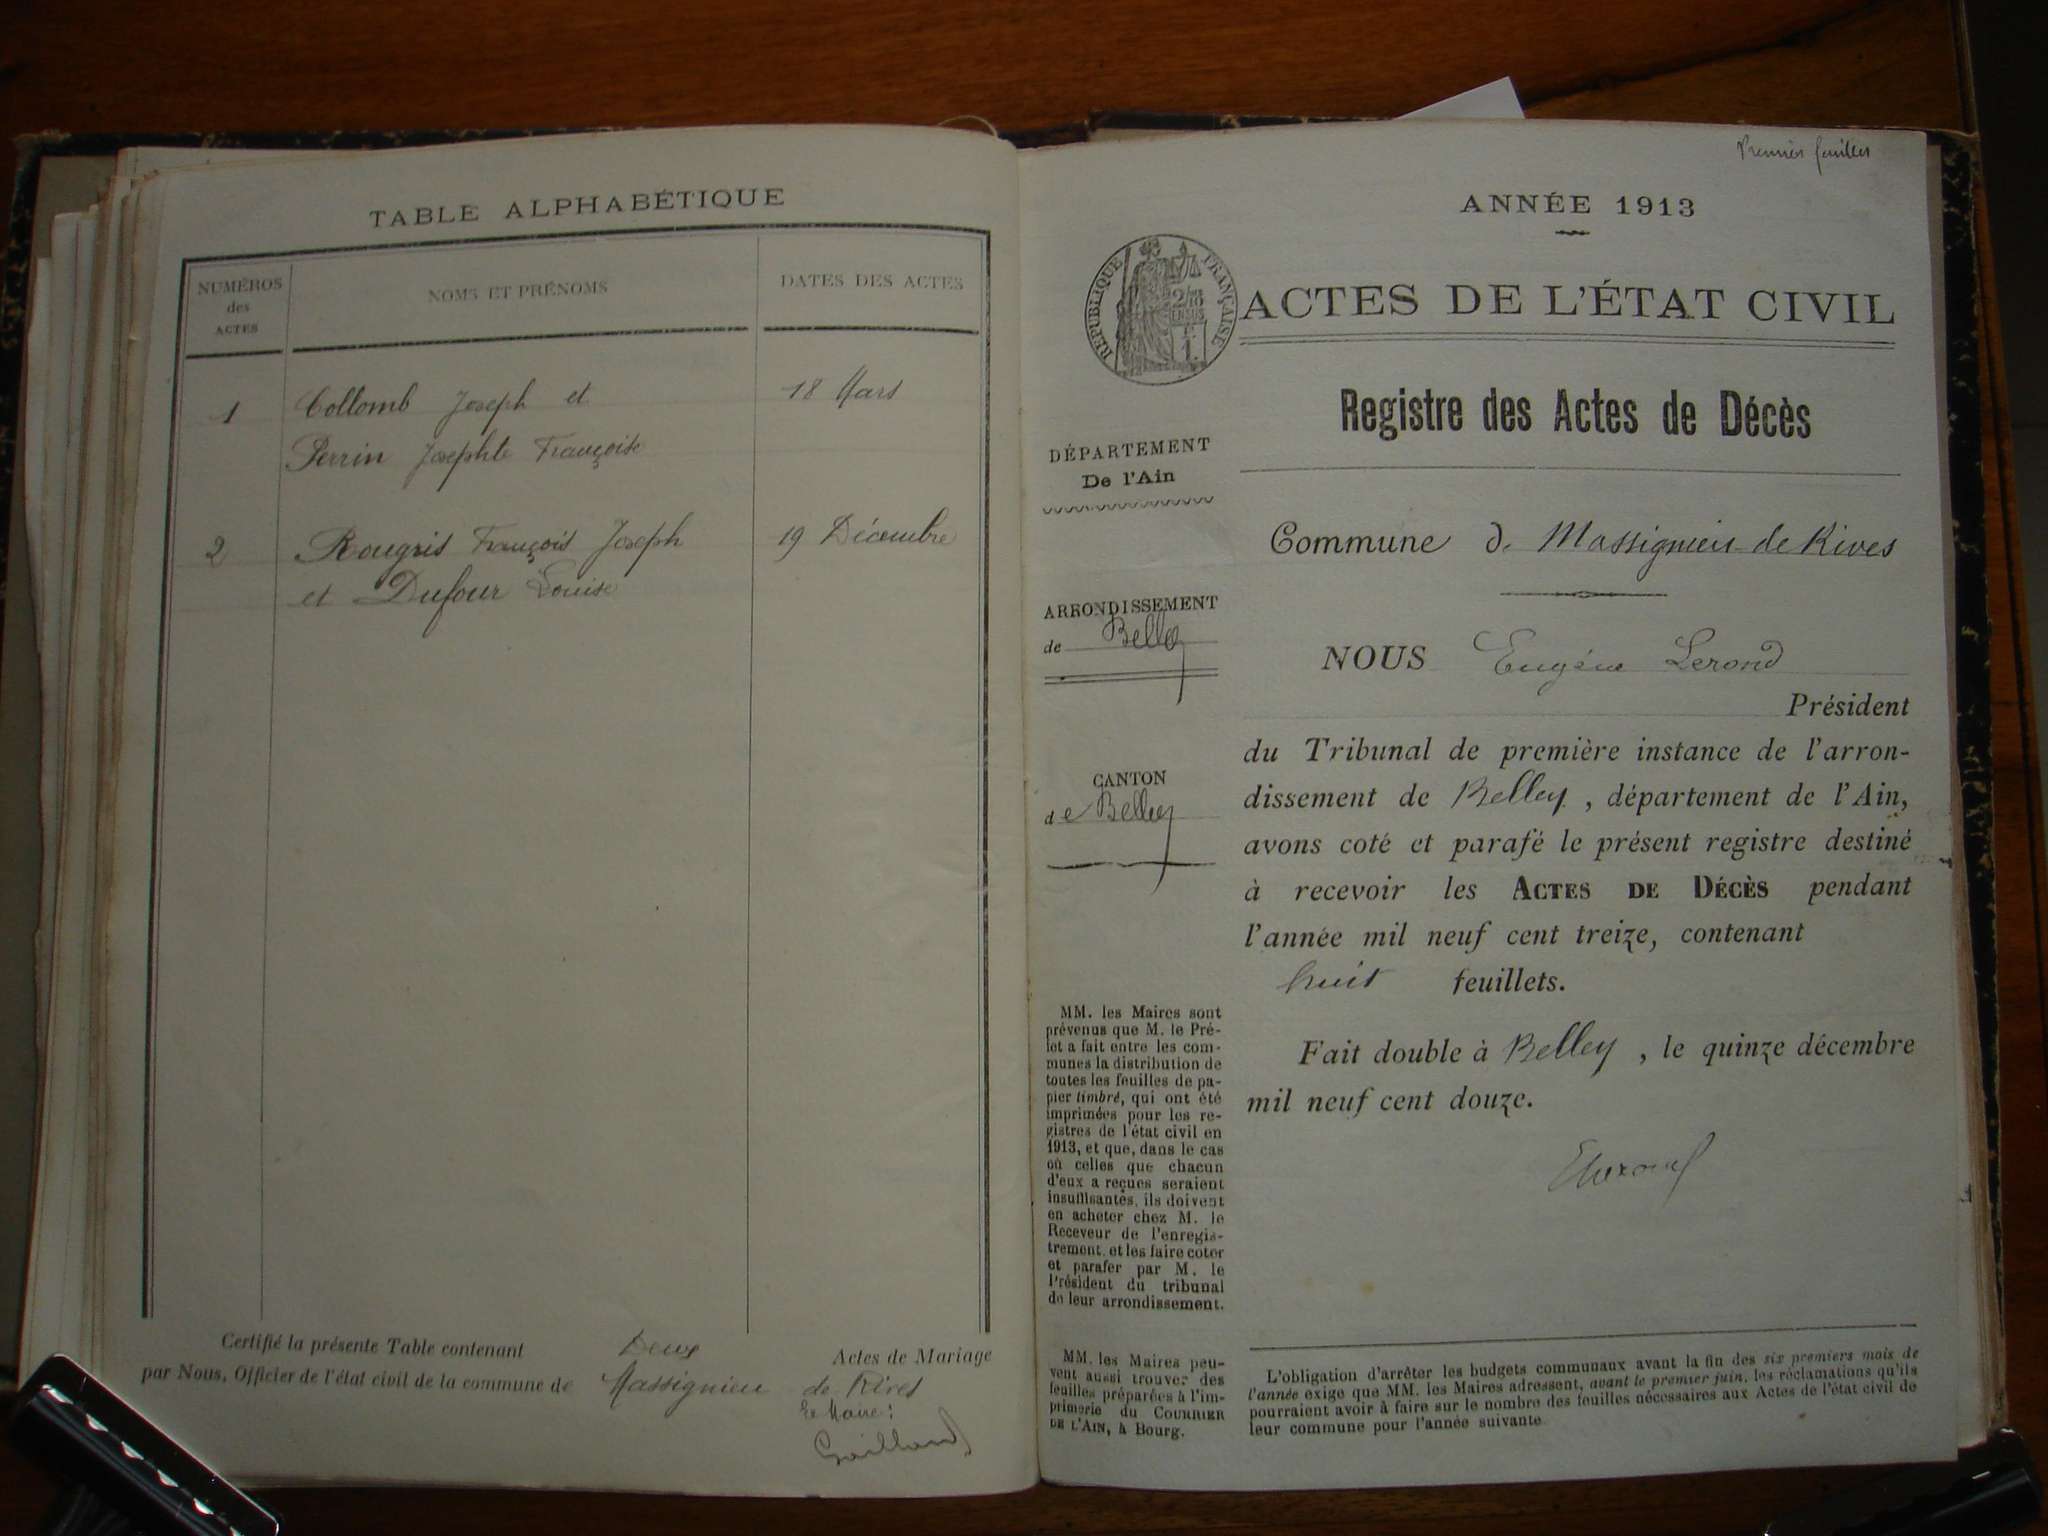 TABLE ALPHABÉTIQUE
NUMÉROS
des
ACTES
NOMS ET PRÉNOMS
DATES DES ACTES
1
Collomb Joseph et
18 Mars
Perrin Josephte Françoise
2
Rougris François Joseph
19 Décembre
et Dufour Louise
Certifié la présente Table contenant Deux Actes de Mariage
par Nous, Officier de l'état civil de la commune de Massignieu de Rives
Le Maire :
Gaillard
Premier feuillet
ANNÉE 1913
RÉPUBLIQUE FRANÇAISE
2/10
EN SUS
1
ACTES DE L'ÉTAT CIVIL
Registre des Actes de Décès
DÉPARTEMENT
De l'Ain
Commune de Massignieu de Rives
ARRONDISSEMENT
de Belley
CANTON
de Belley
NOUS Eugène Lerond
Président
du Tribunal de première instance de l'arron-
dissement de Belley, département de l'Ain,
avons coté et parafé le présent registre destiné
à recevoir les ACTES DE DÉCÈS pendant
l'année mil neuf cent treize, contenant
huit feuillets.
Fait double à Belley, le quinze décembre
mil neuf cent douze.
MM. les Maires sont
prévenus que M. le Pré-
fet a fait entre les com-
munes la distribution de
toutes les feuilles de pa-
pier timbré, qui ont été
imprimées pour les re-
gistres de l'état civil en
1913, et que, dans le cas
où celles que chacun
d'eux a reçues seraient
insuffisantes, ils doivent
en acheter chez M. le
Receveur de l'enregis-
trement, et les faire coter
et parafer par M. le
Président du tribunal
de leur arrondissement.
MM. les Maires peu-
vent aussi trouver des
feuilles préparées à l'im-
primerie du COURRIER
DE L'AIN, à Bourg.
L'obligation d'arrêter les budgets communaux avant la fin des six premiers mois de
l'année exige que MM. les Maires adressent, avant le premier juin, les réclamations qu'ils
pourraient avoir à faire sur le nombre des feuilles nécessaires aux Actes de l'état civil de
leur commune pour l'année suivante